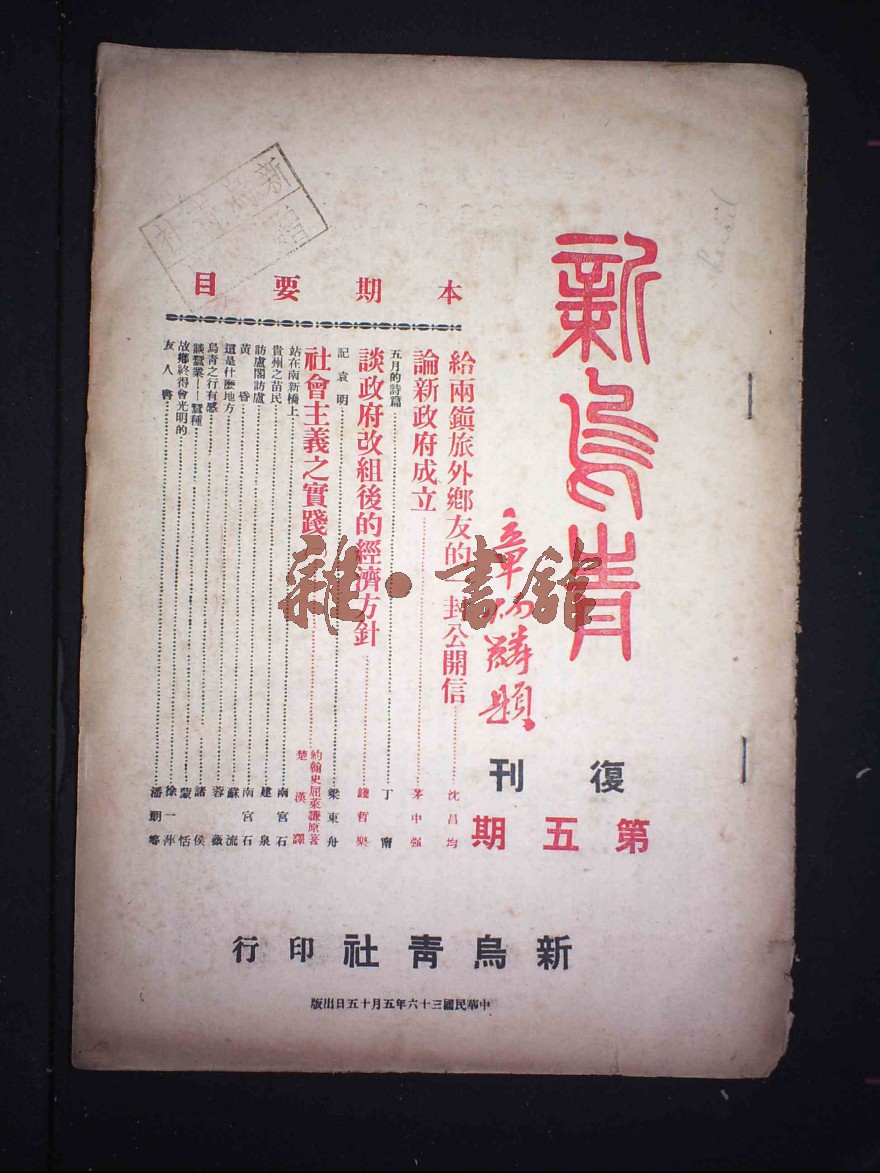 新烏青
章炳麟題
復刊
第五期
本期要目
給兩鎮旅外鄉友的一封公開信 沈昌均
論新政府成立 茅中強
五月的詩篇 丁甯
談政府改組後的經濟方針 錢哲樂
記袁明 梁東舟
社會主義之實踐 約翰史屈萊謙原著 楚漢譯
站在南新橋上 南宮石
貴州之苗民 建泉
訪盧閣訪盧 南宮石
黃昏 蘇流
還是什麼地方 蓉薇
烏青之行有感 諸侯
談蠶業——蠶種 蒙恬
故鄉終得會光明的 徐一萍
友人書 潘
新烏青社印行
中華民國三十六年五月十五日出版
雜·書館